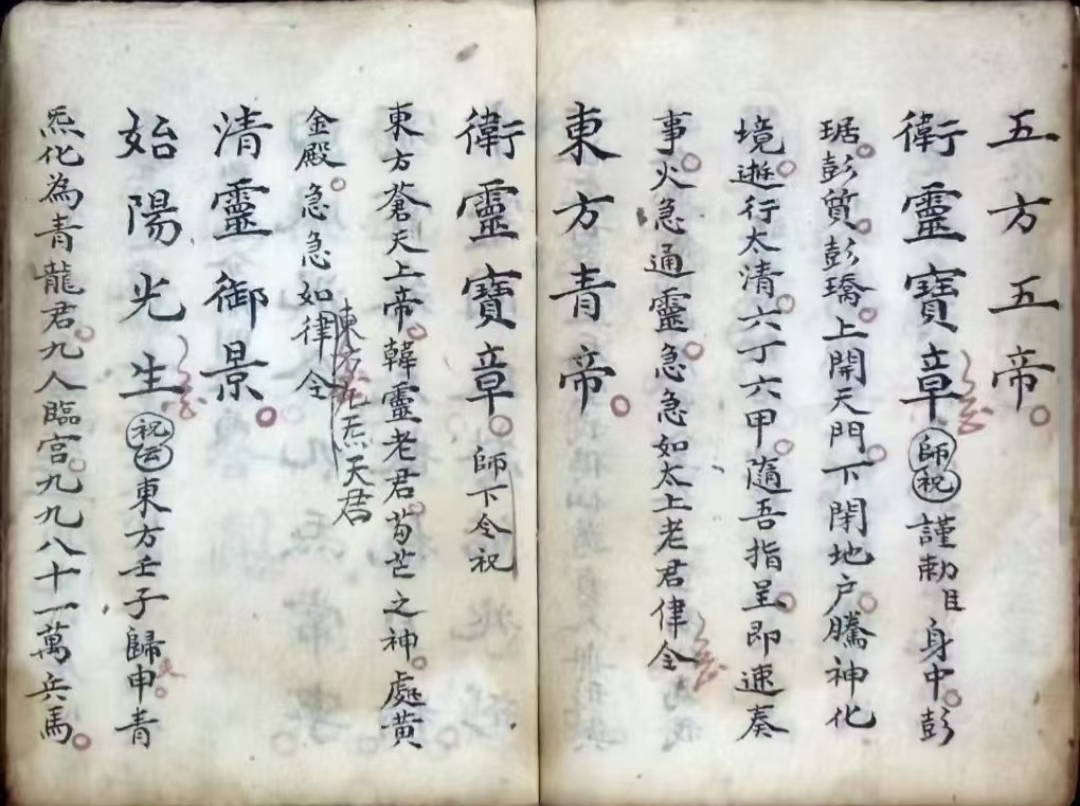 五方五帝。
衛靈寶章 師祝 謹勅臣身中。彭
琚。彭質。彭瓊。上開天門。下閉地户。騰神化
境。遊行太清。六丁六甲。隨吾指呈。即速奏
事。火急通靈。急急如太上老君律令
東方青帝。
衛靈寶章。師下令祝
東方蒼天上帝。韓靈老君。苟芒之神。處黄
東方九炁天君
金殿。急急如律令
清靈御景。
始陽光生 祝云 東方壬子歸申。青
炁化為青龍君。九人臨宫。九九八十一萬兵馬。